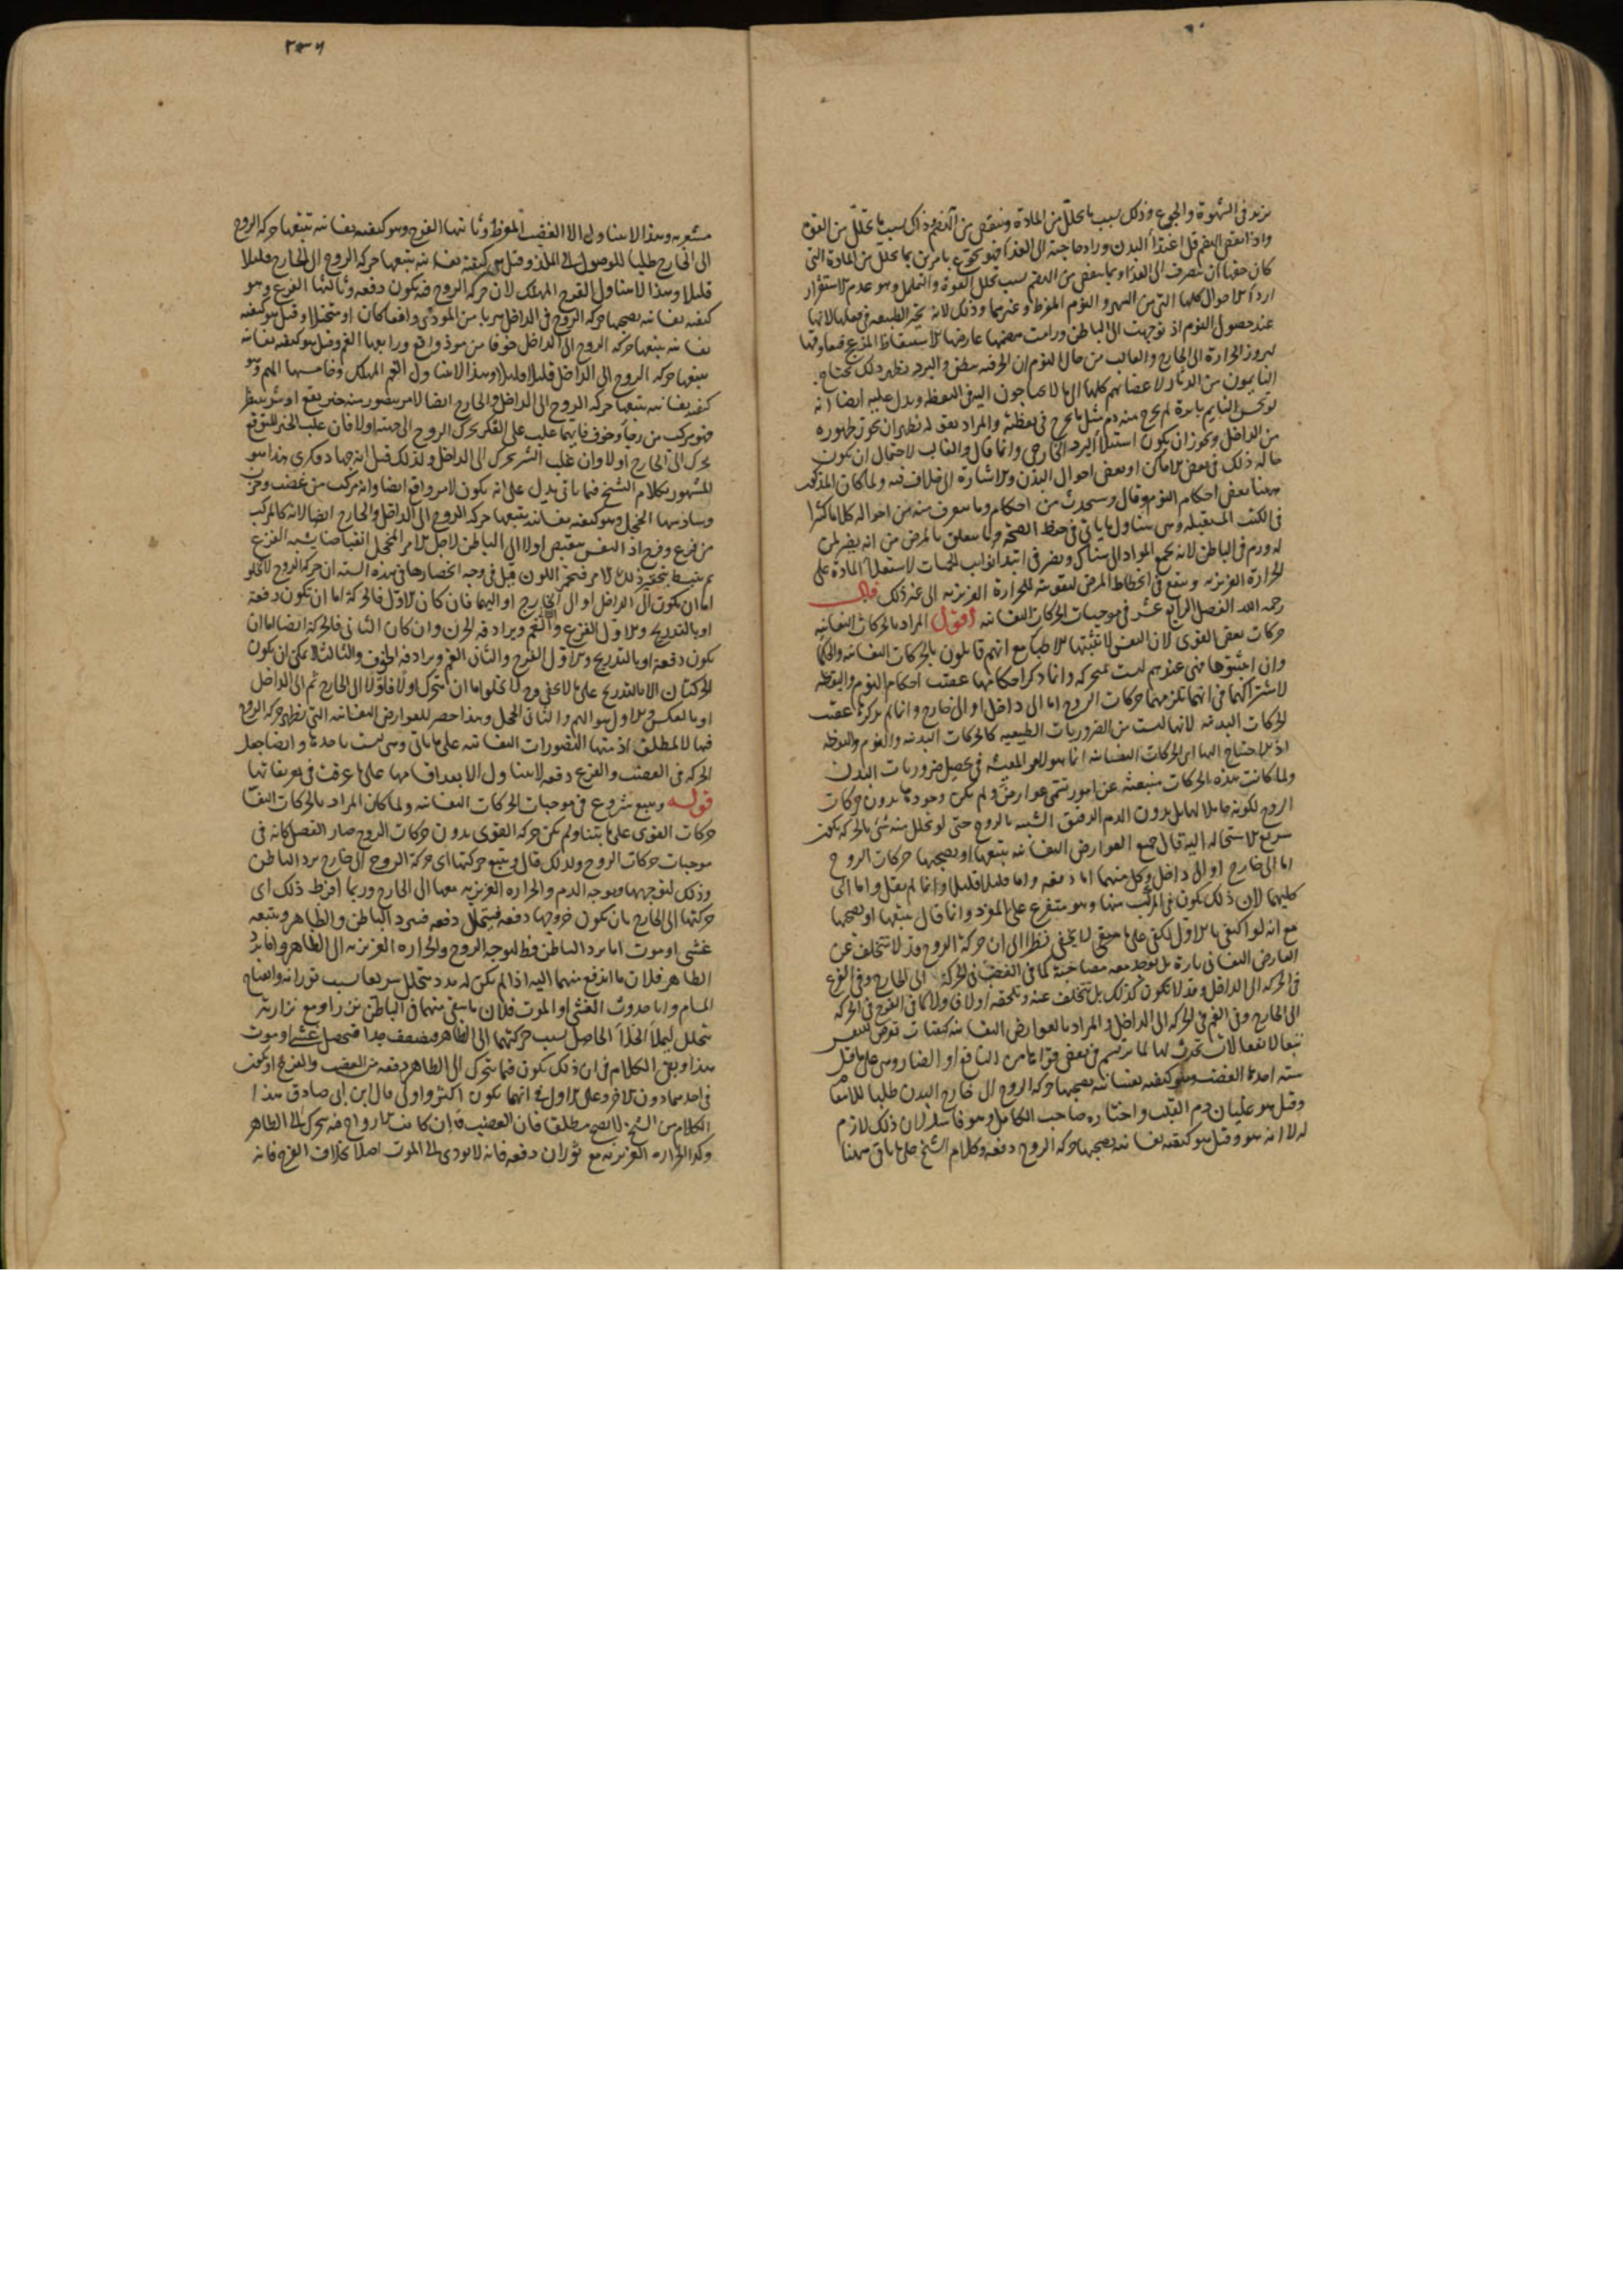 يزيد في الشهوة والجوع وذلك بسبب ما تحلل من المادة وينقص من الهضم وذلك بسبب ما تحلل من القوة
واذا نقص الهضم قل اغتذاء البدن وزاد حاجته الى الغذاء فهو يجوع بامرين بما تحلل من المادة التي
كان حقها ان تنصرف الى الغذاء وبما ينقص من الهضم بسبب تحلل القوة والتململ وهو عدم الاستقرار
اردأ الاحوال كلها التي من السهر والنوم المفرط وغيرهما وذلك لانه يحير الطبيعة في فعلها لانها
عند حصول النوم اذ توجهت الى الباطن ورامت هضمها عارضها الاستيقاظ المزعج
لبروز الحرارة الى الخارج والغالب من حال النوم ان الحر فيه يبطن والبرد يظهر ولذلك يحتاج
النايمون من الدثار لاعضائهم كلها الى ما لا يحتاجون اليه في اليقظة ويدل عليه ايضا انه
من الداخل ويجوز ان يكون استيلاء البرد الخارجي وانما قال والغالب لاحتمال ان يكون
حاله ذلك في بعض الاماكن او بعض احوال البدن والاشارة الى خلاف فيه ولما كان المذكور
ههنا بعض احكام النوم قال وستجد من احكام وما يتعرف منه من احواله كلاما كثيرا
في الكتب المستقبلة وهي يتناول ما ياتي في حفظ الصحة وما يتعلق بالمرض من انه يضر لمن
له ورم في الباطن لانه يجمع المواد الى هناك ويضر في ابتداء نوايب الحميات لاستيلاء المادة على
الحرارة الغريزية وينفع في انحطاط المرض لتقويته للحرارة الغريزية الى غير ذلك قال
رحمه الله الفصل الرابع عشر في موجبات الحركات النفسانية اقول المراد بالحركات النفسانية
حركات بعض القوى لان النفس لا تثبتها الاطباء مع انهم قايلون بالحركات النفسانية والحكماء
وان اثبتوها فهي عندهم ليست بمتحركة وانما ذكر احكامها عقيب احكام النوم واليقظة
لاشتراكهما في انهما تلزمهما حركات الروح اما الى داخل او الى خارج وانما لم يذكرها عقيب
الحركات البدنية لانها ليست من الضروريات الطبيعية كالحركات البدنية والنوم واليقظة
اذ الاحتياج اليها اي الحركات النفسانية انما هو للامور المعيشة في تحصيل ضروريات البدن
ولما كانت هذه الحركات منبعثة عن امور تسمى عوارض ولم يكن وجودها بدون حركات
الروح لكونه حاملا لها بل بدون الدم الرقيق الشبيه بالروح حتى لو تحلل منه شيء بالحركة يكون
سريع الاستحالة اليه قال جميع العوارض النفسانية يتبعها او يصحبها حركات الروح
اما الى خارج او الى داخل وكل منهما اما دفعة واما قليلا قليلا وانما لم يقل واما الى
كليهما لان ذلك يكون في المركب منها وهو متفرع على المفرد وانما قال يتبعها او يصحبها
مع انه لو اكتفى بالاول لكفى على ما لا يخفى نظرا الى ان حركة الروح قد لا تتخلف عن
العارض النفساني تارة بل توجد معه مصاحبة كما في الغضب في الحركة الى الخارج وفي الفزع
في الحركة الى الداخل وقد لا تكون كذلك بل تتخلف عنه وتلحقه اولا فاولا كما في الفرح في الحركة
الى الخارج وفي الغم في الحركة الى الداخل والمراد بالعوارض النفسانية كيفيات تعرض للنفس
تبعا لانفعالات تحدث لها لما يرتسم في بعض قواها من النافع او الضار وهي على ما قيل
ستة احدها الغضب وهو كيفية نفسانية يصحبها حركة الروح الى خارج البدن طلبا للانتقام
وقيل هو غليان دم القلب واختاره صاحب الكامل وهو فاسد لان ذلك لازم
له لا انه هو وقيل هو كيفية نفسانية يصحبها حركة الروح دفعة وكلام الشيخ على ما ياتي ههنا
٢٣٦
مشعر به وهذا لا يتناول الا الغضب المفرط وثانيها الفرح وهو كيفية نفسانية يتبعها حركة الروح
الى الخارج طلبا للوصول الى الملذ وقيل هي كيفية نفسانية يتبعها حركة الروح الى الخارج قليلا
قليلا وهذا لا يتناول الفرح المهلك لان حركة الروح فيه يكون دفعة وثالثها الفزع وهو
كيفية نفسانية يصحبها حركة الروح في الداخل هربا من الموذي واقعا كان او متخيلا وقيل هو كيفية
نفسانية يتبعها حركة الروح الى الداخل خوفا من موذ واقع ورابعها الغم وقيل هو كيفية نفسانية
يتبعها حركة الروح الى الداخل قليلا قليلا وهذا لا يتناول الغم المهلك وخامسها الهم وهو
كيفية نفسانية يتبعها حركة الروح الى الداخل والخارج ايضا لامر يتصور منه خير يقع او شر ينتظر
فهو مركب من رجاء وخوف فايهما غلب على الفكر تحرك الروح الى جهته اولا فان غلب الخير المتوقع
تحرك الى الخارج اولا وان غلب الشر تحرك الى الداخل ولذلك قيل انه جهاد فكري هذا هو
المشهور وكلام الشيخ فيما ياتي يدل على انه يكون لامر واقع ايضا وانه مركب من غضب وحزن
وسادسها الخجل وهو كيفية نفسانية يتبعها حركة الروح الى الداخل والخارج ايضا لانه كالمركب
من فزع وفرح اذ النفس ينقبض اولا الى الباطن لاجل الامر المخجل انقباضا يشبه الفزع
ثم ينبسط بتحقير ذلك الامر فيحمر اللون قيل في وجه انحصارها في هذه الستة ان حركة الروح لا تخلو
اما ان يكون الى الداخل او الى الخارج او اليهما فان كان الاول فالحركة اما ان تكون دفعة
او بالتدريج والاول الفزع والثاني الغم ويرادفه الحزن وان كان الثاني فالحركة ايضا اما ان
يكون دفعة او بالتدريج والاول الفرح والثاني الغم ويرادفه الخوف والثالث لا يمكن ان يكون
الحركتان الا بالتدريج على ما لا يخفى وح لا يخلو اما ان يتحرك اولا فاولا الى الخارج ثم الى الداخل
او بالعكس والاول هو الهم والثاني الخجل وهذا حصر للعوارض النفسانية التي تظهر حركة الروح
فيها لا لمطلق اذ منها التصورات النفسانية على ما ياتي وهي ليست باحدها وايضا جعل
الحركة في الغضب والفزع دفعة لا يتناول الا بعد اقسامها على ما عرفت في تعريفاتها
قوله ويتبع شروع في موجبات الحركات النفسانية ولما كان المراد بالحركات النفسا
حركات القوى على ما بيننا ولم تكن حركة القوى بدون حركات الروح صار الفصل كانه في
موجبات حركات الروح ولذلك قال ويتبع حركتها اي حركة الروح الى خارج برد الباطن
وذلك لتوجهها وتوجه الدم والحرارة الغريزية معها الى الخارج وربما افرط ذلك اي
حركتها الى الخارج بان يكون خروجها دفعة فيتحلل دفعة فيبرد الباطن والظاهر ويتبعه
غشي او موت اما برد الباطن فظ لتوجه الروح والحرارة الغريزية الى الظاهر واما برد
الظاهر فلان ما اندفع منهما اليه اذا لم يكن له مدد يتحلل سريعا بسبب ثورانه وانفتاح
المسام واما حدوث الغشي او الموت فلان ما بقي منهما في الباطن نزرا ومع نزارته
تخلخل لملأ الخلاء الحاصل بسبب حركتهما الى الظاهر فضعف جدا فتحصل غشي او موت
هذا وبقي الكلام في ان ذلك يكون فيما يتحرك الى الظاهر دفعة من الغضب والفرح او يكون
في احدهما دون الاخر وعلى الاول في ايهما يكون اكثر واولى قال ابن ابي صادق هذا
الكلام من الشيخ لا يصح مطلقا فان الغضب وان كانت الارواح فيه يتحرك الى الظاهر
وكذا الحرارة الغريزية مع ثوران دفعة فانه لا يودي الى الموت اصلا بخلاف الفرح فانه